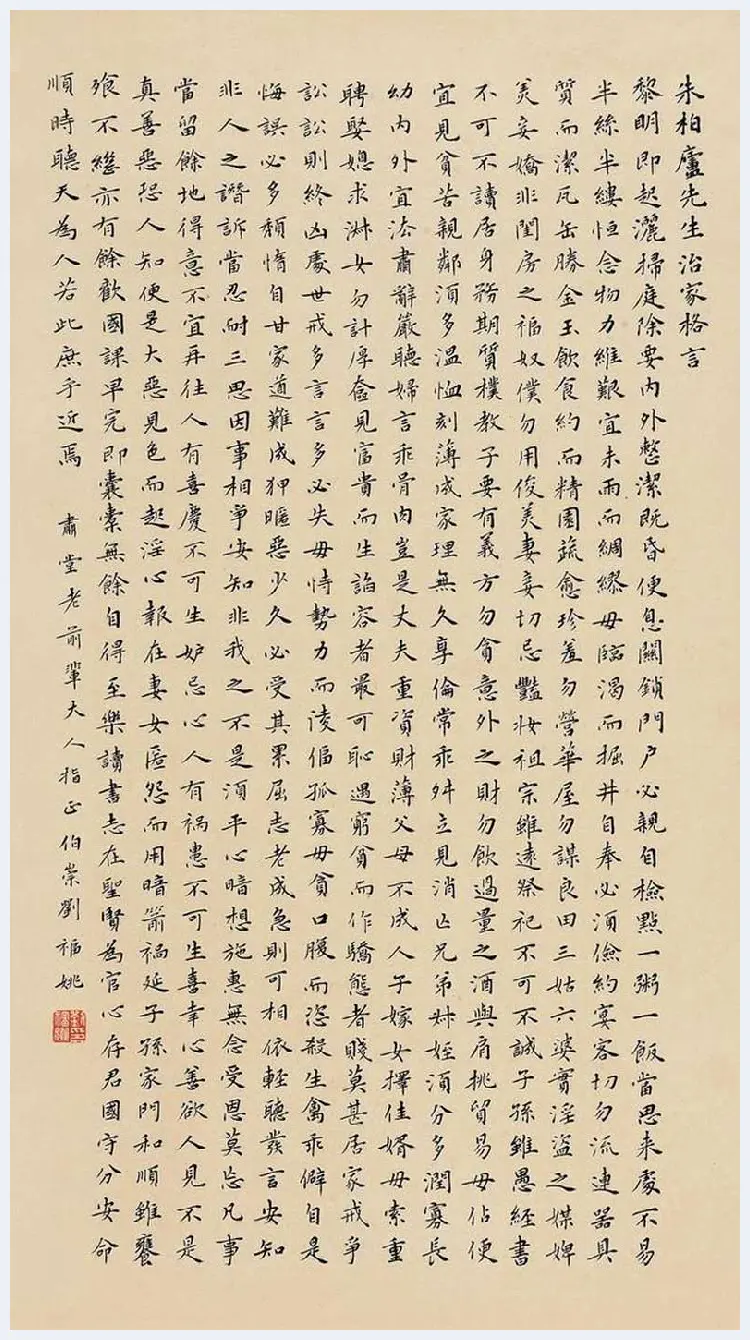 朱柏廬先生治家格言
黎明即起灑掃庭除要內外整潔既昏便息關鎖門户必親自檢點一粥一飯當思来處不易
半絲半縷恒念物力維艱宜未雨而綢繆毋臨渴而掘井自奉必須儉約宴客切勿流連器具
質而潔瓦缶勝金玉飲食約而精園蔬愈珍羞勿營華屋勿謀良田三姑六婆實淫盜之媒婢
美妾嬌非閨房之福奴僕勿用俊美妻妾切忌豔妝祖宗雖遠祭祀不可不誠子孫雖愚經書
不可不讀居身務期質樸教子要有義方勿貪意外之財勿飲過量之酒與肩挑貿易毋佔便
宜見貧苦親鄰須多溫恤刻薄成家理無久享倫常乖舛立見消亡兄弟叔姪須分多潤寡長
幼內外宜法肅辭嚴聽婦言乖骨肉豈是丈夫重資財薄父母不成人子嫁女擇佳婿毋索重
聘娶媳求淑女勿計厚奩見富貴而生諂容者最可恥遇窮貧而作驕態者賤莫甚居家戒爭
訟訟則終凶處世戒多言言多必失毋恃勢力而淩偪孤寡毋貪口腹而恣殺生禽乖僻自是
悔誤必多頹惰自甘家道難成狎暱惡少久必受其累屈志老成急則可相依輕聽發言安知
非人之譖訴當忍耐三思因事相爭安知非我之不是須平心暗想施惠無念受恩莫忘凡事
當留餘地得意不宜再往人有喜慶不可生妒忌心人有禍患不可生喜幸心善欲人見不是
真善惡恐人知便是大惡見色而起淫心報在妻女匿怨而用暗箭禍延子孫家門和順雖饔
飧不繼亦有餘歡國課早完即囊橐無餘自得至樂讀書志在聖賢為官心存君國守分安命
順時聽天為人若此庶乎近焉 肅堂老前輩大人指正伯崇劉福姚